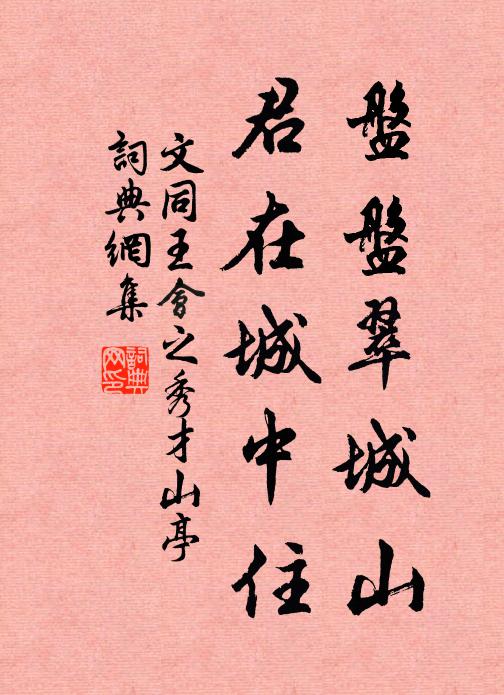 盤盤翠城山
君在城中住
文同王會之秀才山亭
詞典網集
詞典網印